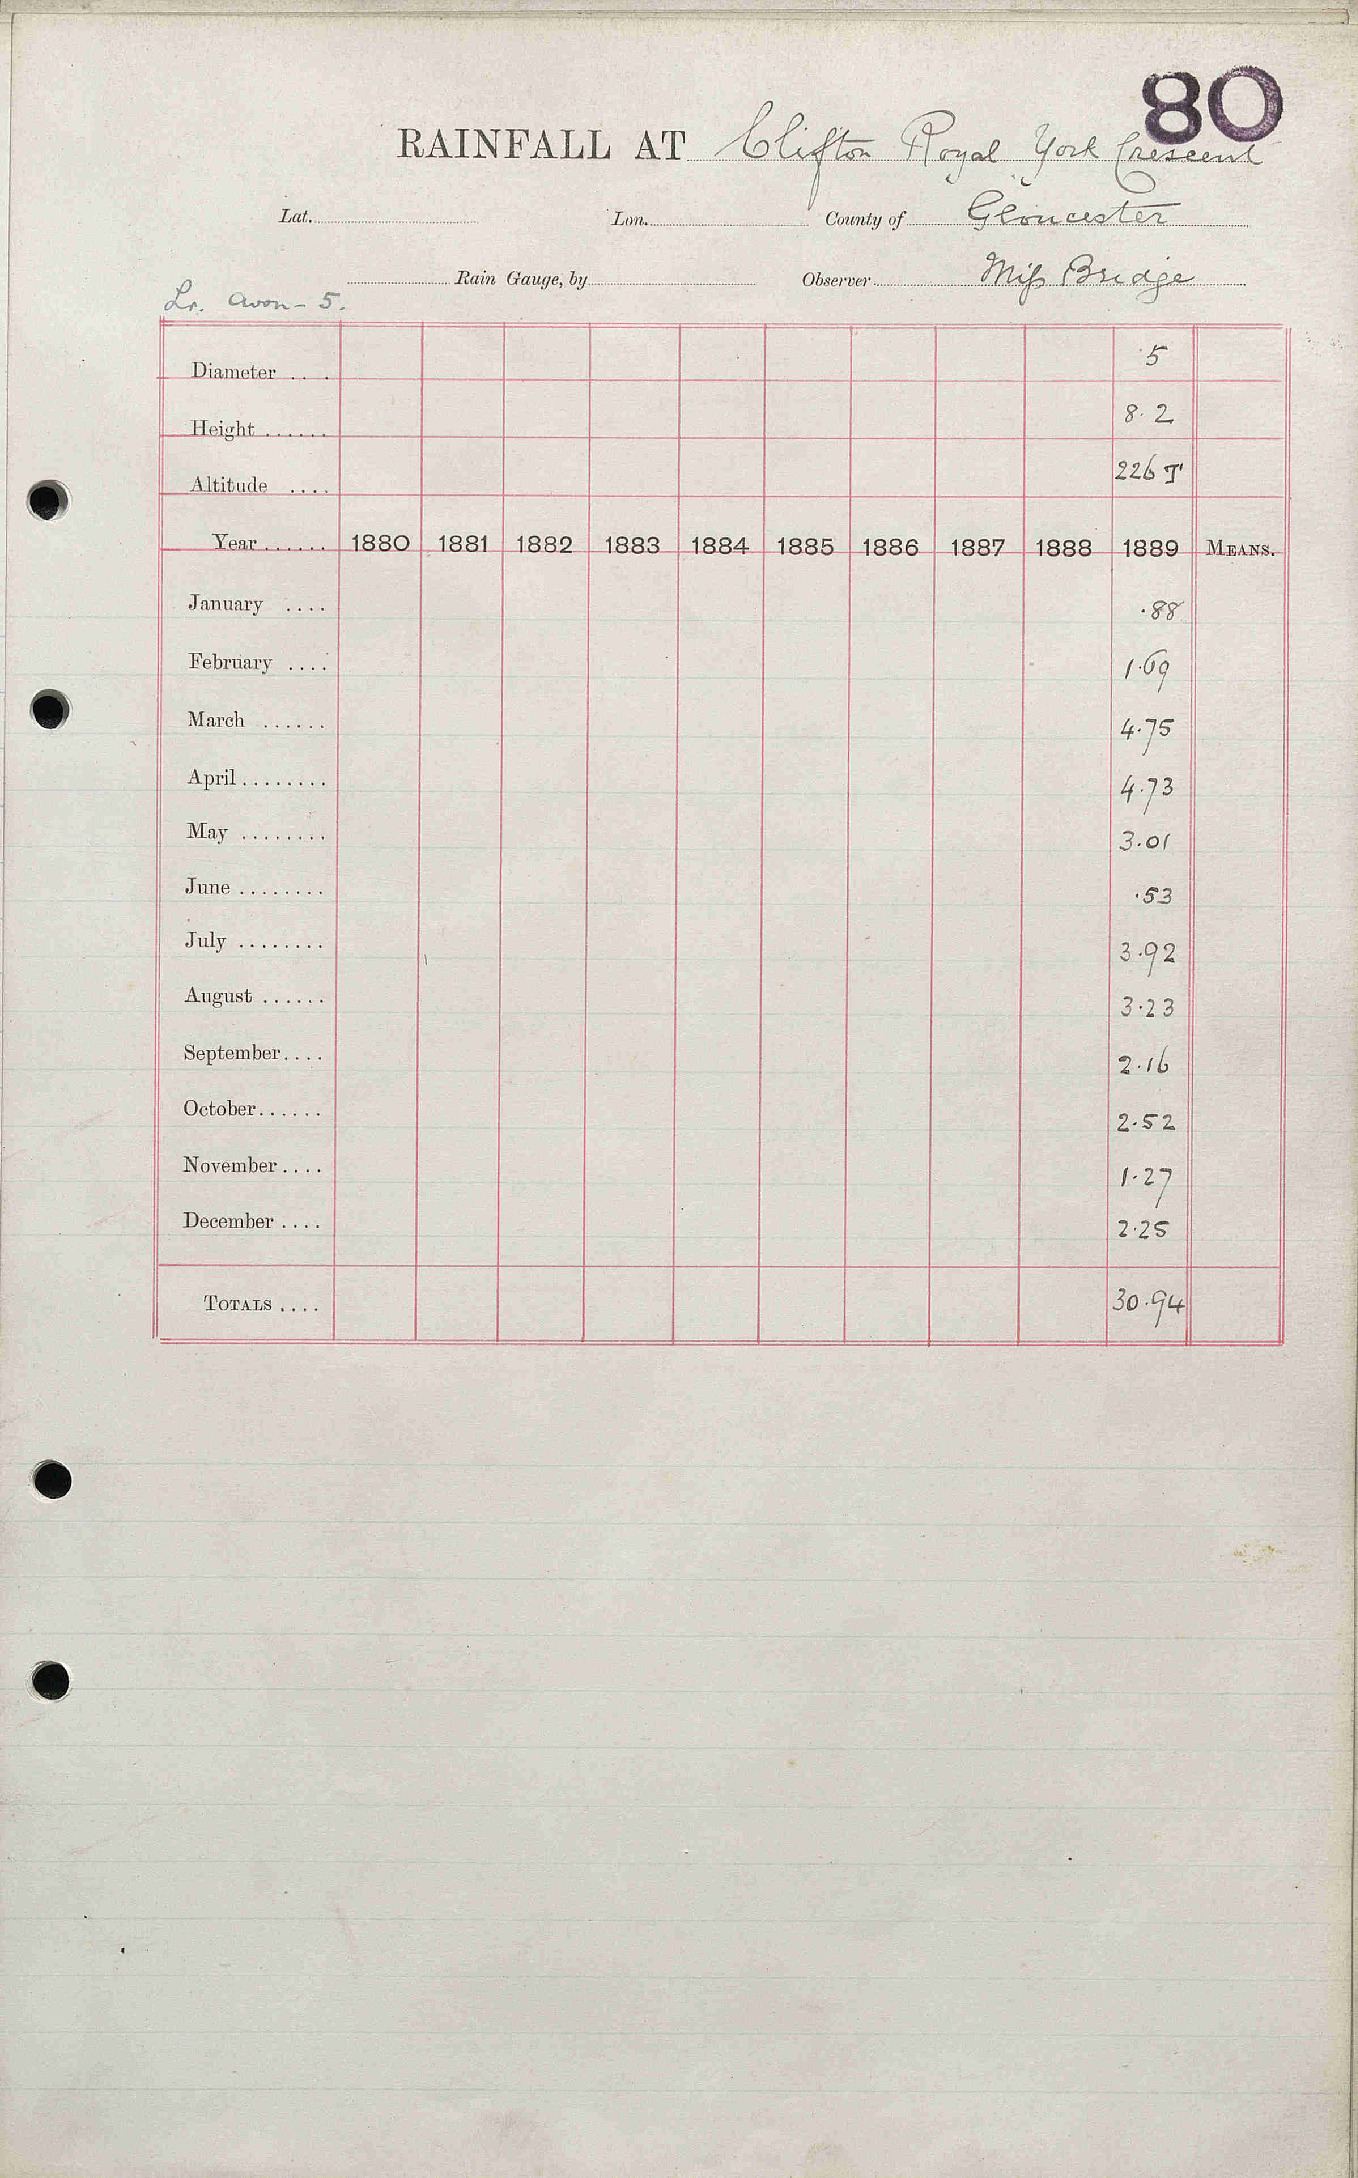 80
RAINFALL AT Clifton Royal York Crescent
Lat. Lon. County of Gloucester
Rain Gauge, by Observer Miss Bridge
Lr. Avon - 5.
Diameter .... 5
Height ...... 8.2
Altitude .... 226 T
Year ...... 1880 1881 1882 1883 1884 1885 1886 1887 1888 1889 MEANS.
January .... .88
February .... 1.69
March ...... 4.75
April ........ 4.73
May ........ 3.01
June ........ .53
July ........ 3.92
August ...... 3.23
September .... 2.16
October ...... 2.52
November .... 1.27
December .... 2.25
TOTALS .... 30.94